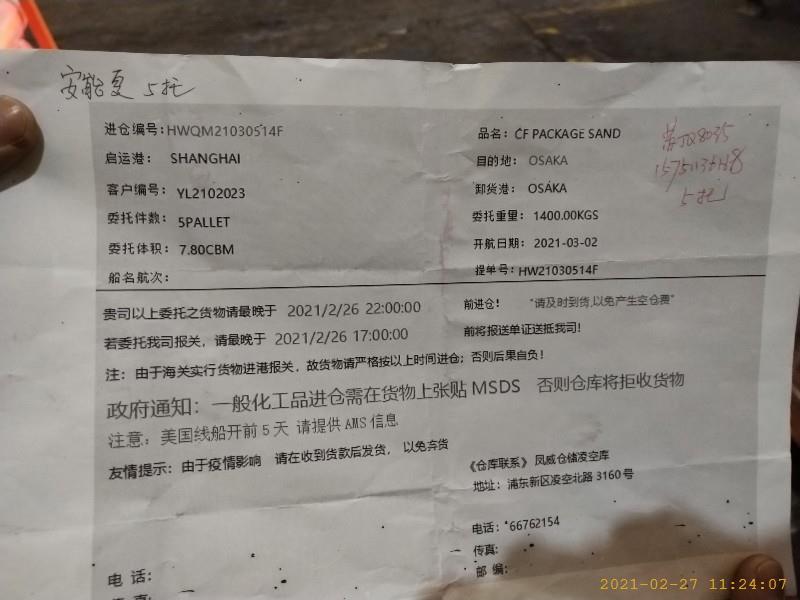 安能夏 5托
进仓编号:HWQM21030514F
品名: CF PACKAGE SAND
启运港: SHANGHAI
目的地: OSAKA
客户编号: YL2102023
卸货港: OSAKA
委托件数: 5PALLET
委托重量: 1400.00KGS
委托体积: 7.80CBM
开航日期: 2021-03-02
船名航次:
提单号: HW21030514F
5托
贵司以上委托之货物请最晚于 2021/2/26 22:00:00 前进仓! "请及时到货,以免产生空仓费"
若委托我司报关, 请最晚于 2021/2/26 17:00:00 前将报送单证送抵我司!
注: 由于海关实行货物进港报关, 故货物请严格按以上时间进仓; 否则后果自负!
政府通知: 一般化工品进仓需在货物上张贴 MSDS 否则仓库将拒收货物
注意: 美国线船开前 5 天 请提供 AMS 信息
友情提示: 由于疫情影响 请在收到货款后发货, 以免弃货
《仓库联系》 凤威仓储凌空库
地址: 浦东新区凌空北路 3160 号
电话: 66762154
传真:
邮 编:
电 话:
2021-02-27 11:24:07